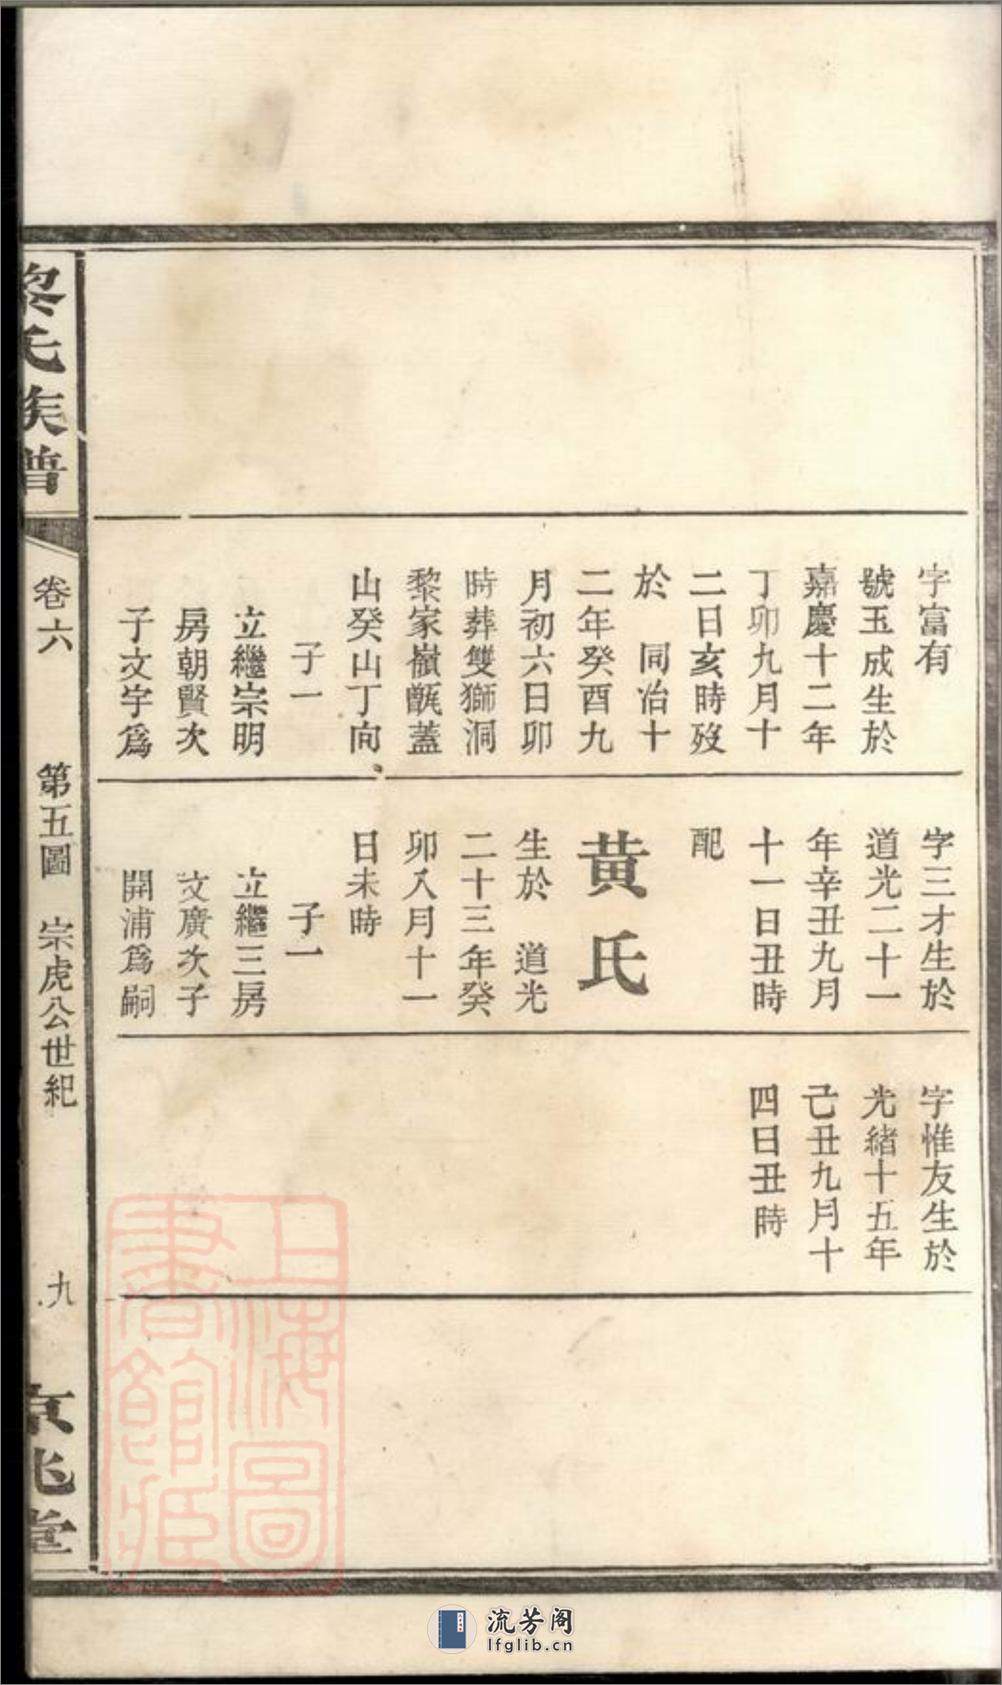 字富有
號玉成生於
嘉慶十二年
丁卯九月十
二日亥時歿
於 同治十
二年癸酉九
月初六日卯
時葬雙獅洞
黎家嶺甑蓋
山癸山丁向、
子一
立繼宗明
房朝賢次
子文宇爲
字三才生於
道光二十一
年辛丑九月
十一日丑時
配
黃氏
生於 道光
二十三年癸
卯入月十一
日未時
子一
立繼三房
文廣次子
開浦爲嗣
字惟友生於
光緒十五年
己丑九月十
四日丑時
黎氏族譜
卷六 第五圖 宗虎公世紀 九
京兆堂
上海圖
書館藏
流芳阁
lfglib.cn